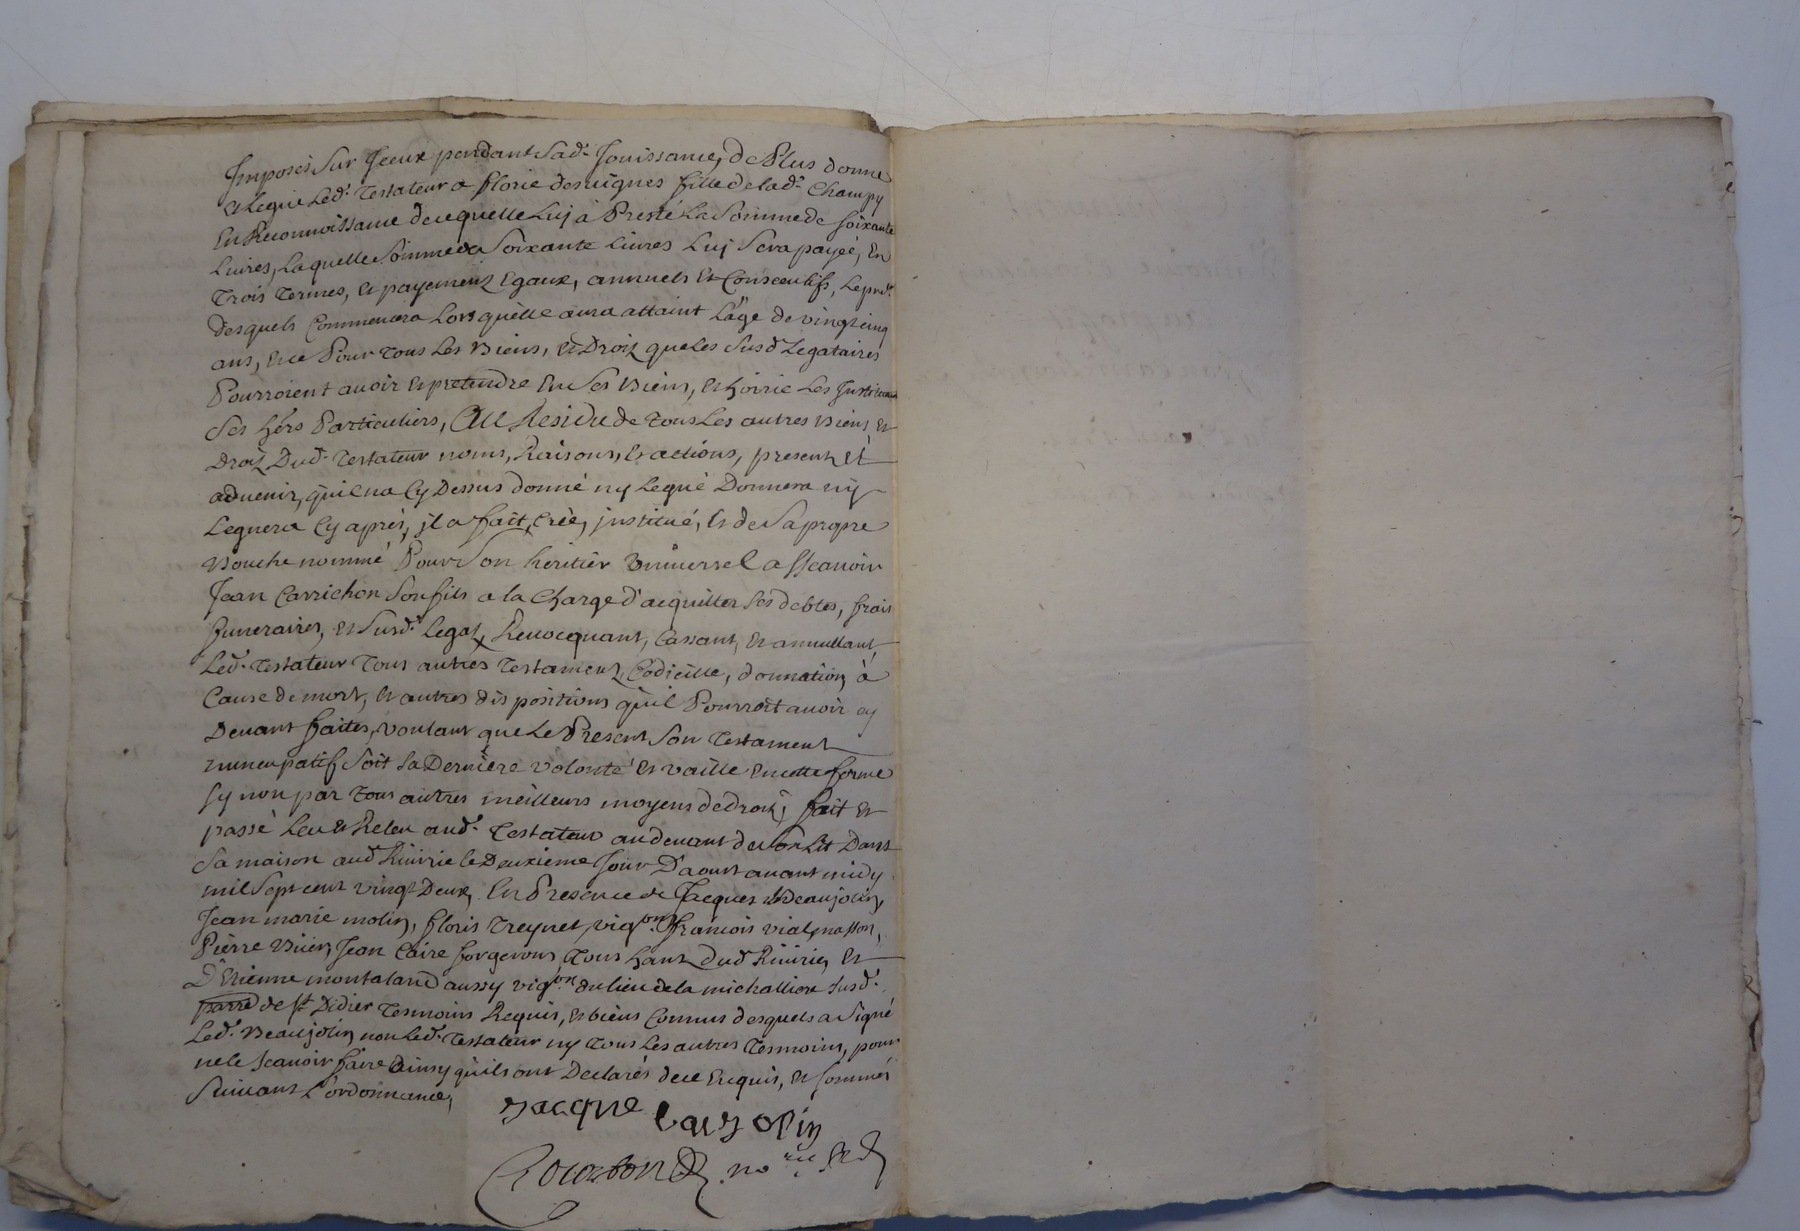 Imposés Sur Iceux pendant Sad.^e Jouissance, de Plus donne
et Legue Led.^t Testateur a Florie desuignes fille de lad.^e Champy
En Reconnoissance de ce quelle Luj à Presté La Somme de Soixante
Liures, Laquelle Somme de Soixante Liures Luj Sera payéé, En
Trois Termes, et payementz Egaux, annuels et Consecutifs, Le pre.^r
desquels Commencera Lors qu'elle aura attaint L'age de vingt cinq
ans, Et ce Pour Tous Les Biens, et Droitz que les Susd Legataires
Pourroient auoir et pretendre En Ses Biens, et hoirie Les Instituant
Ses hérs Particuliers, Au Residu de Tous Les autres Biens, et
Droitz Dud.^t Testateur noms, Raisons, et actions, presents et
aduenir, qu'il na Cy Dessus donné ny Legué Donnera ny
Leguera Cy aprés, il a fait, Créé, institué, et de Sa propre
Bouche nommé Pour Son heritier Vniuersel a Sscauoir
Jean Carrichon Son fils a la Charge d'acquitter Ses debtes, frais
funeraires, et Susd.^t Legatz, Reuocquant, Cassant, et annullant,
Led.^t Testateur Tous autres Testamentz, Codicille, donnation, à
Cause de mort, et autres dispositions qu'il Pourroit auoir cy
Deuant faites, voulant que Le Present Son Testament
nuncupatif Soit Sa Derniere volonté et vaille En cette forme
Sy non par Tous autres meilleurs moyens de droit; fait et
passé Leu et Releu aud.^t Testateur au deuant de Son Lit Dans
Sa maison aud Riuirie le Deuxieme Jour D'aoust auant midy
mil Sept cent vingt Deux, En Presence de Jacques Beaujolin,
Jean marie molin, floris Treynet, vig.^ons, francois vial, masson,
Pierre Biier, Jean Caire forgerons, Tous hantz Dud Riuirie, et
D'Etienne montaland aussy vig.^on du lieu de la michalliere Susd.^e
parre de S^t Didier Tesmoins Requis, et bien Connus desquels a Signé
Led.^t Beaujolin, non Led.^t Testateur ny Tous Les autres Tesmoins, pour
ne le Scauoir faire Ainsy qu'ils ont Declarés de ce Enquis, et Sommés
Suiuant L'ordonnance,
Jacque baujolin
no^re